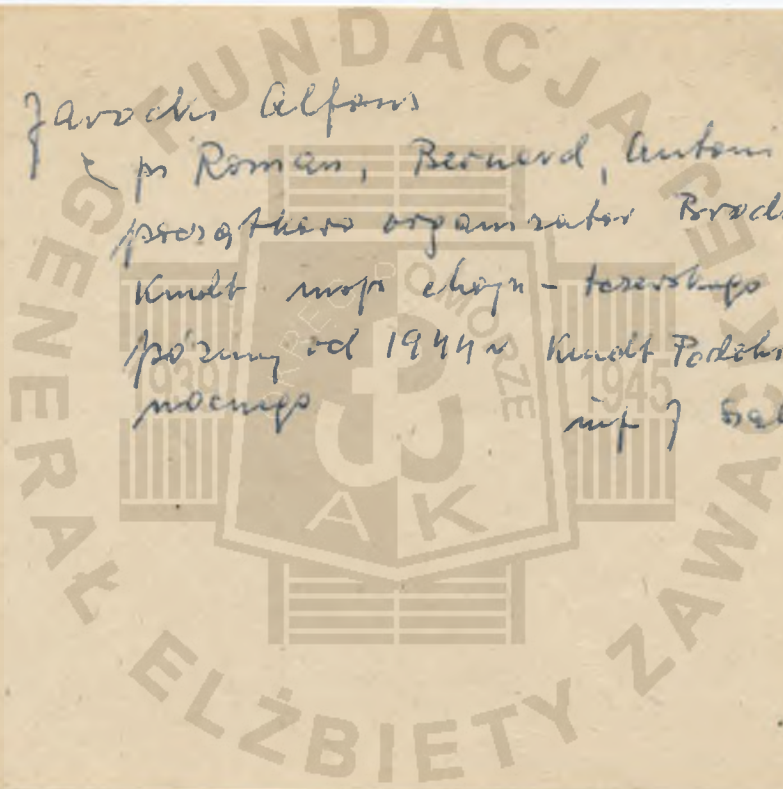 Jarocki Alfons
ps Roman, Bernard, Antoni
początkowo organizator Brodn
Kmdt insp chojn - 
później od 1944 r Kmdt Podokr
nocnego inf J Sal
FUNDACJA GENERAŁ ELŻBIETY ZAWACKIEJ
OKRĘG POMORZE
1939 1945
AK